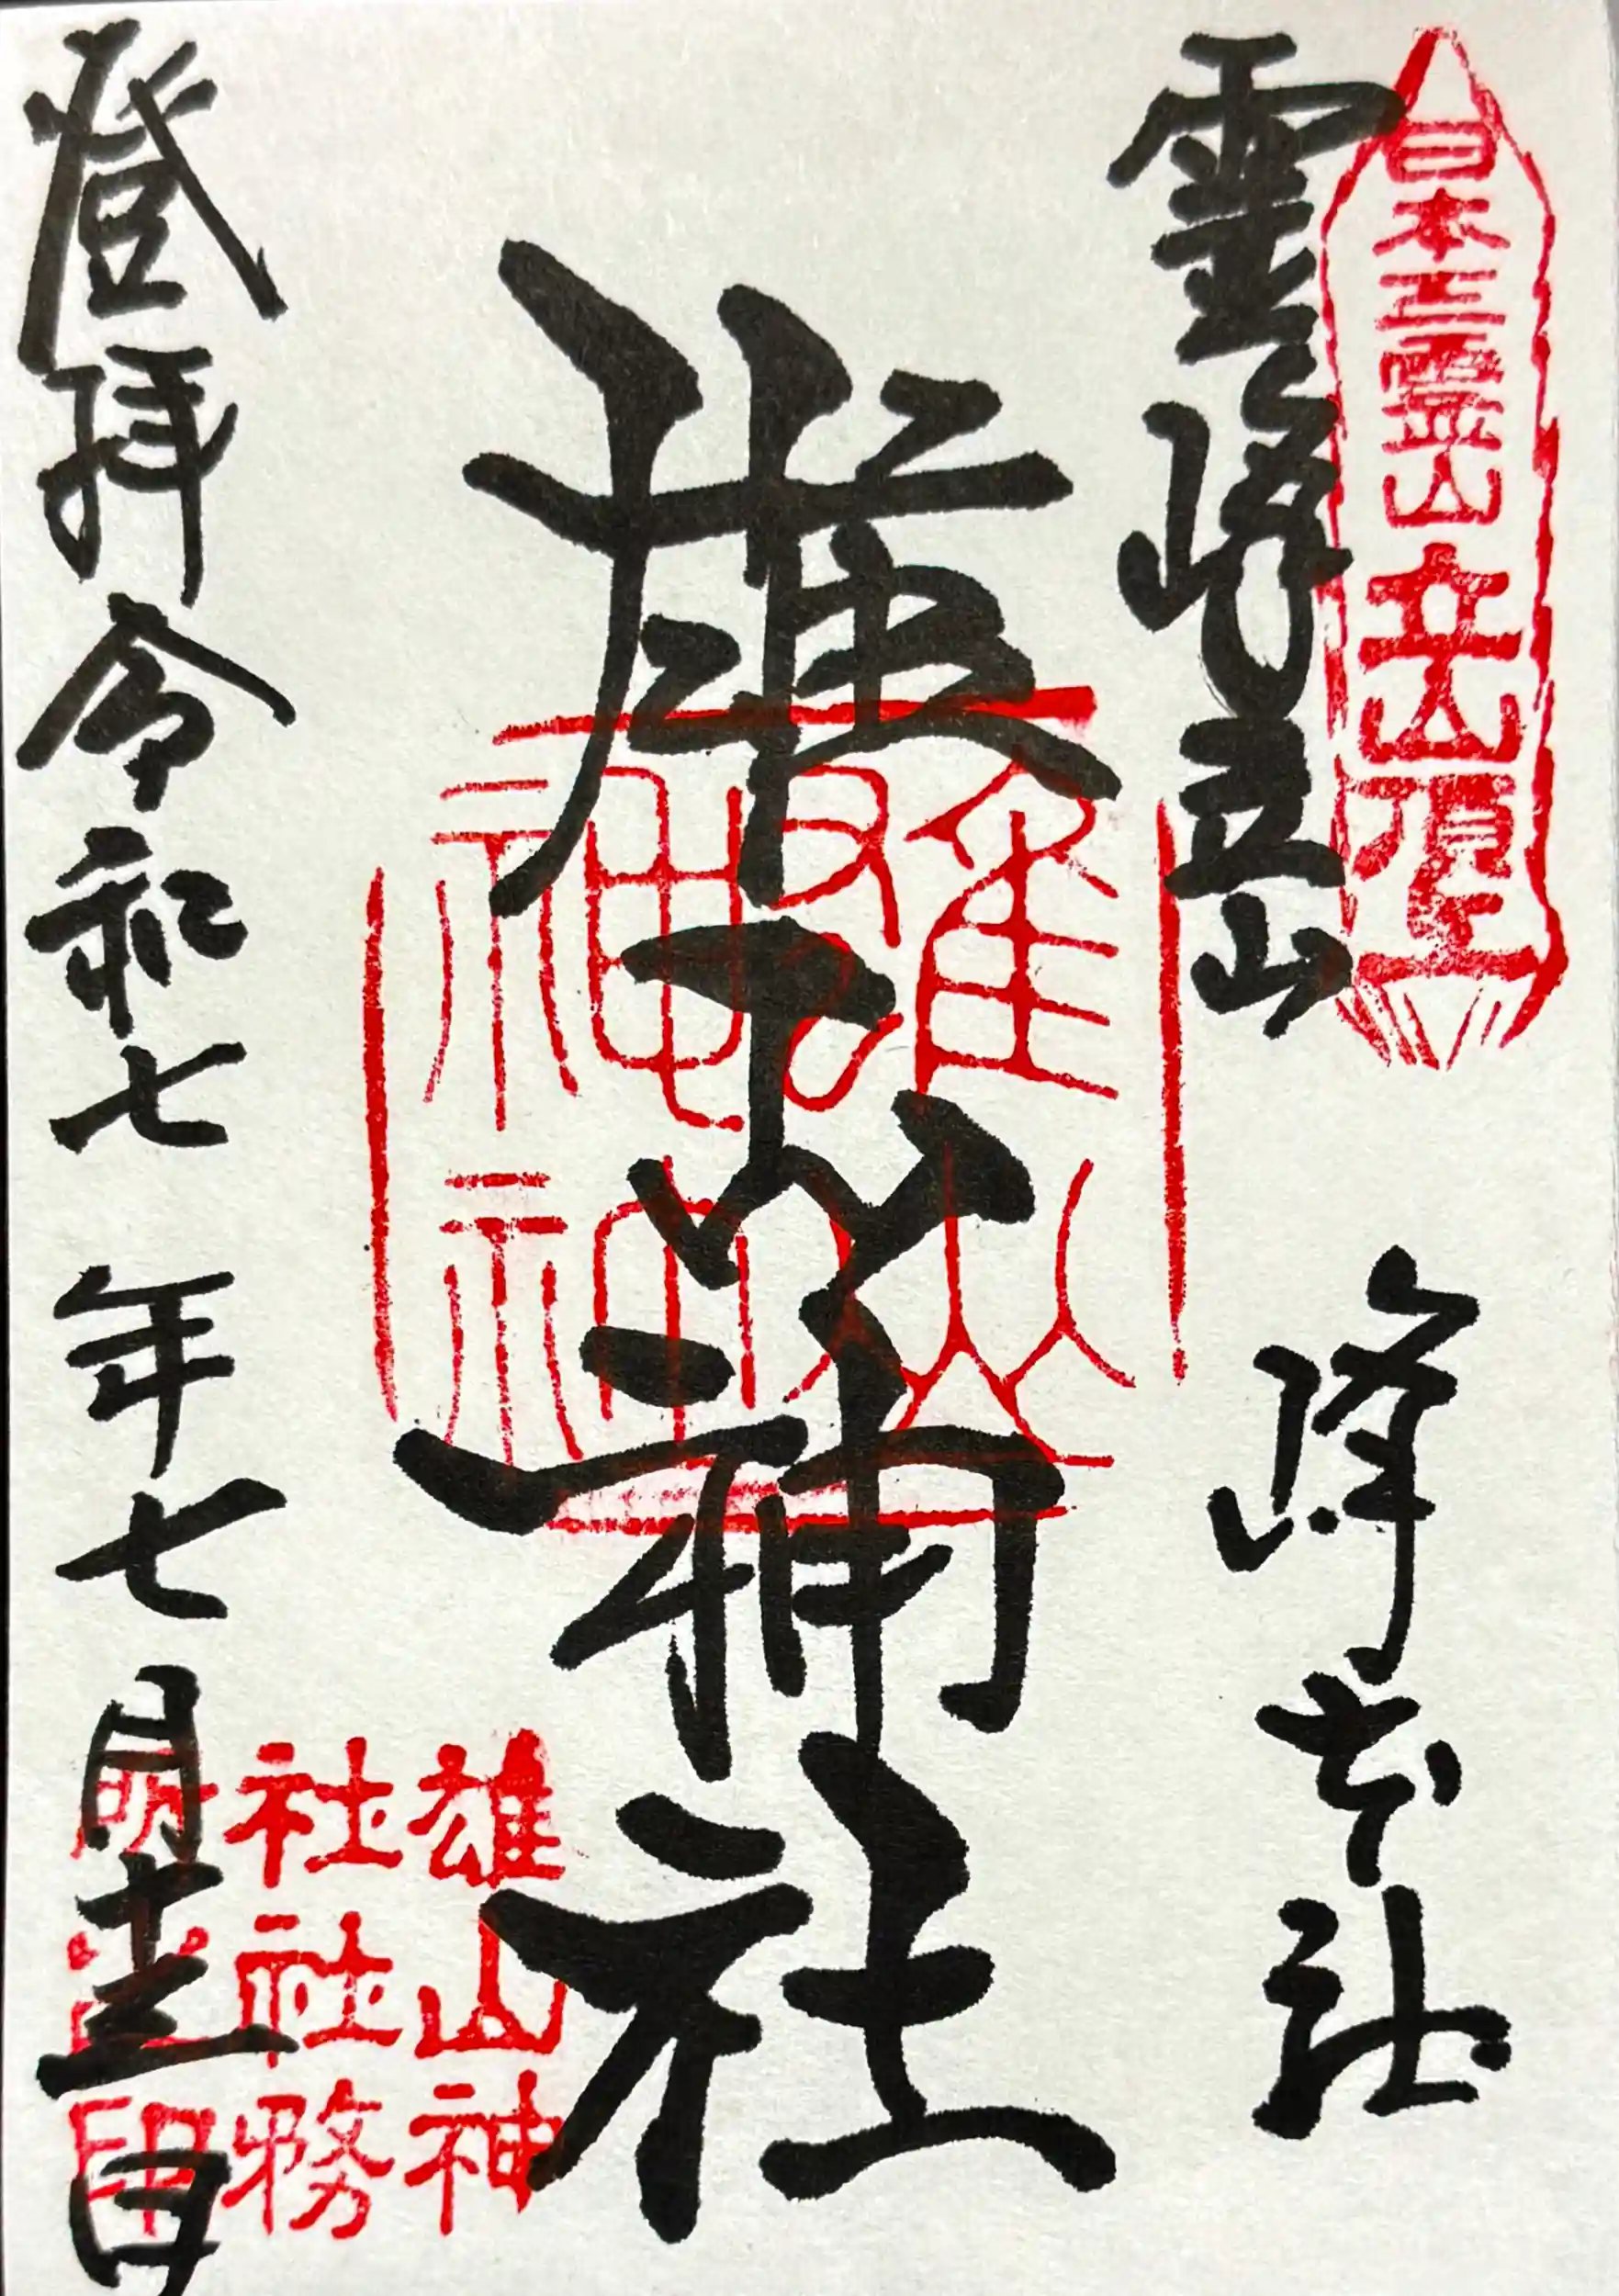 日本三霊山立山頂上
靈峰立山
峰本社
雄山神社
雄山
神社
登拝令和七年七月十三日
雄山神
社社務
所之印